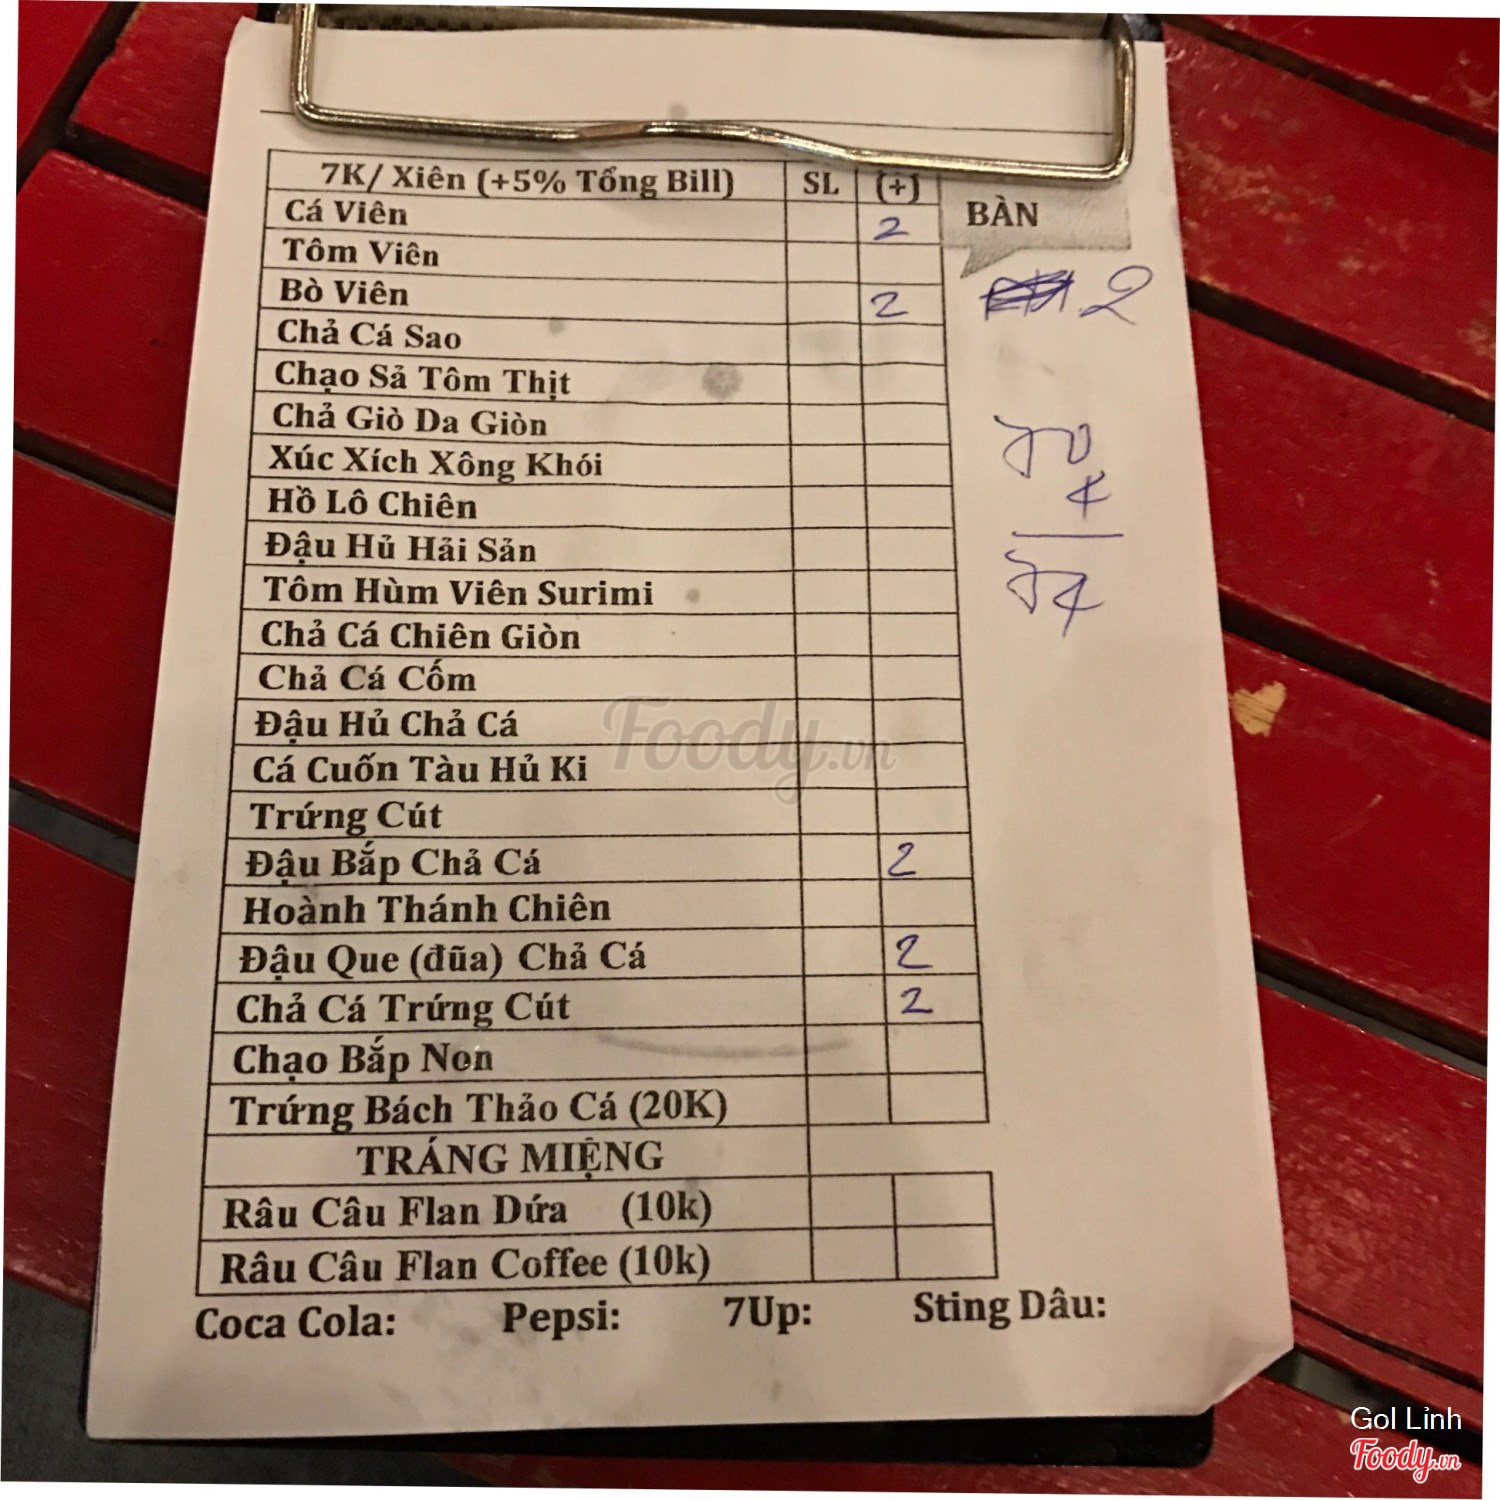 7K/ Xiên (+5% Tổng Bill) SL (+)
BÀN
Cá Viên 2
Tôm Viên
Bò Viên 2
2
Chả Cá Sao
Chạo Sả Tôm Thịt
Chả Giò Da Giòn
70
Xúc Xích Xông Khói
Hồ Lô Chiên
4
Đậu Hủ Hải Sản
Tôm Hùm Viên Surimi
74
Chả Cá Chiên Giòn
Chả Cá Cốm
Đậu Hủ Chả Cá
Foody.vn
Cá Cuốn Tàu Hủ Ki
Trứng Cút
Đậu Bắp Chả Cá 2
Hoành Thánh Chiên
Đậu Que (đũa) Chả Cá 2
Chả Cá Trứng Cút 2
Chạo Bắp Non
Trứng Bách Thảo Cá (20K)
TRÁNG MIỆNG
Râu Câu Flan Dứa (10k)
Râu Câu Flan Coffee (10k)
Coca Cola: Pepsi: 7Up: Sting Dâu:
Gol Lỉnh
Foody.vn